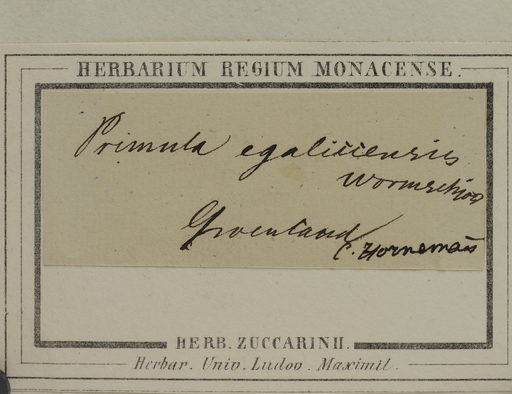 HERBARIUM REGIUM MONACENSE.
Primula egaliccensis
Wormskjold
Groenland
C. Hornemañ
HERB. ZUCCARINII.
Herbar. Univ. Ludov. Maximil.